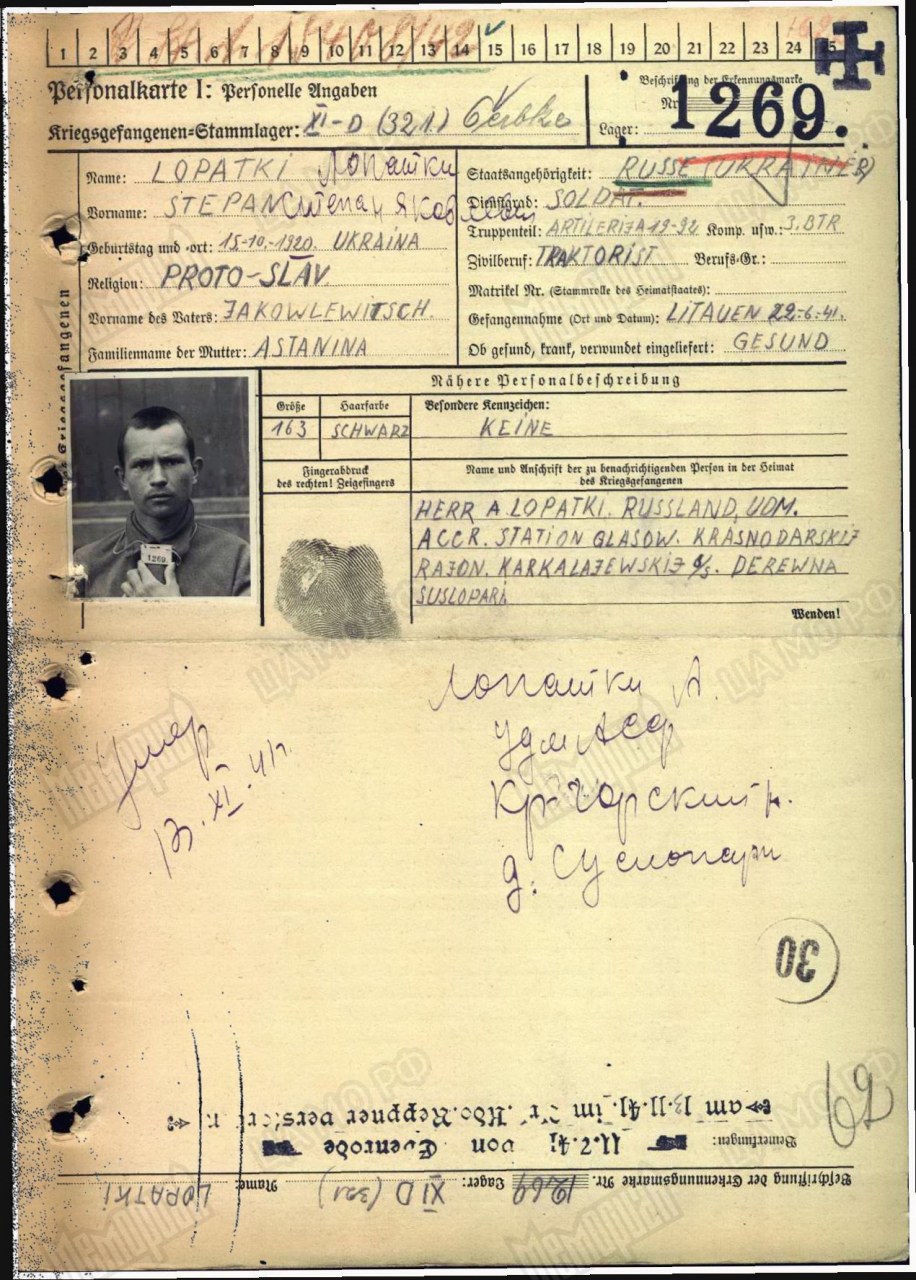 1 2 3 4 5 6 7 8 9 10 11 12 13 14 15 16 17 18 19 20 21 22 23 24 25
Personalkarte I: Personelle Angaben
Kriegsgefangenen-Stammlager: XI-D (321)
Beschriftung der Erkennungsmarke
Nr. 1269.
Lager:
Name: LOPATKI Лопатки
Vorname: STEPAN Степан Яковлевич
Geburtstag und -ort: 15-10.-1920. UKRAINA
Religion: PROTO-SLAV.
Vorname des Vaters: JAKOWLEWITSCH.
Familienname der Mutter: ASTANINA
Staatsangehörigkeit: RUSSE (UKRAINER)
Dienstgrad: SOLDAT.
Truppenteil: ARTILERIJA 19-92 Komp. usw.: 3. BTR
Zivilberuf: TRAKTORIST Berufs-Gr.:
Matrikel Nr. (Stammrolle des Heimatstaates):
Gefangennahme (Ort und Datum): LITAUEN 22-6-41.
Ob gesund, krank, verwundet eingeliefert: GESUND
Nähere Personalbeschreibung
Größe Haarfarbe Besondere Kennzeichen:
163 SCHWARZ KEINE
1269
Fingerabdruck
des rechten! Zeigefingers
Name und Anschrift der zu benachrichtigenden Person in der Heimat
des Kriegsgefangenen
HERR A LOPATKI. RUSSLAND, UDM.
ACCR. STATION GLASOW. KRASNODARSKIJ
RAJON. KARKALAJEWSKIJ S/S. DEREWNA
SUSLOPARI
Wenden!
Лопатки А.
Удм АССР
Кр-Горский р.
д. Суслопари
Умер
13. XI. 41 г.
30
62
am 13.11.41 im Kr. Kdo. Reppner verstorben
Bemerkungen: 11.7.41 von Ebenrode
Beschriftung der Erkennungsmarke Nr. 1269 Lager: XI D (321) Name: LOPATKI
ЦАМО РФ
Мемориал